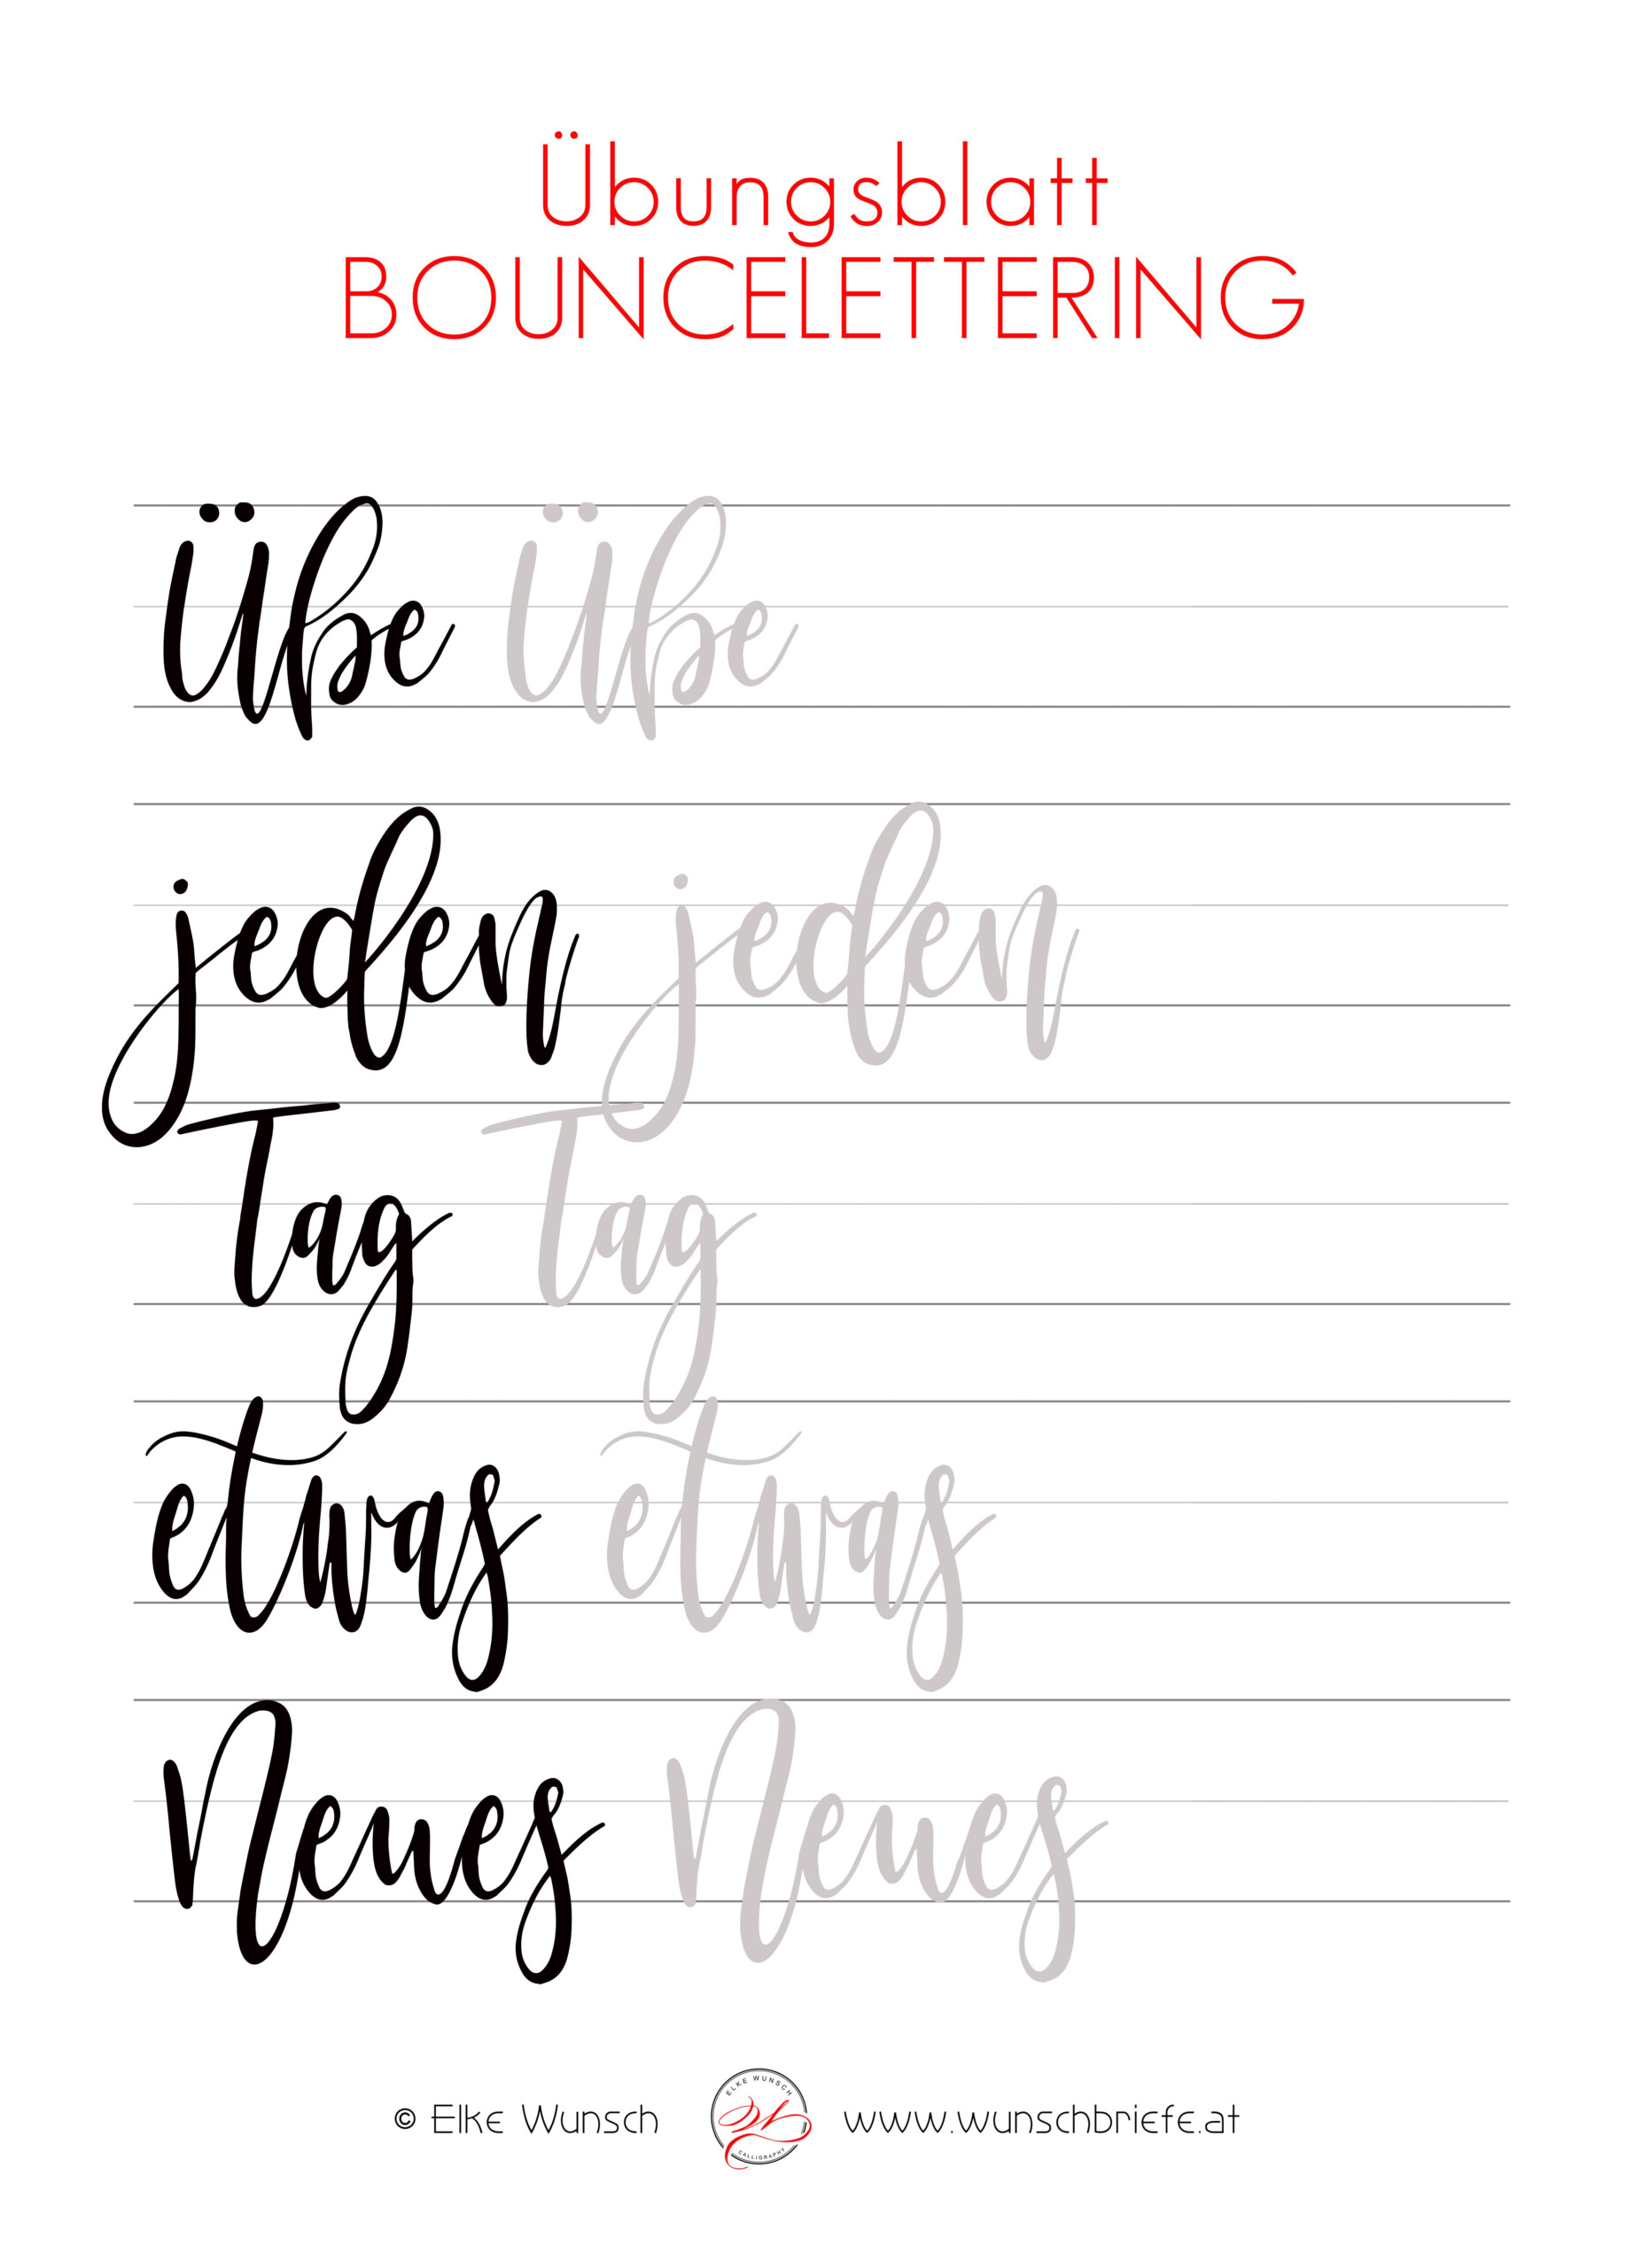 Übungsblatt
BOUNCELETTERING
Übe Übe
jeden jeden
Tag Tag
etwas etwas
Neues Neues
© Elke Wunsch ELKE WUNSCH CALLIGRAPHY www.wunschbriefe.at